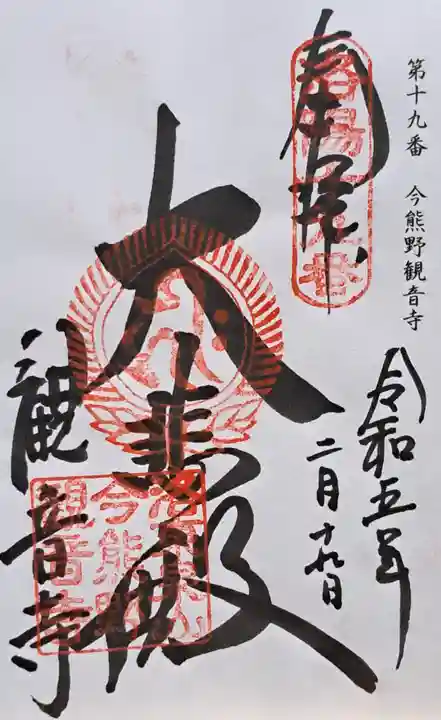 第十九番 今熊野観音寺
奉拝
洛陽十九番
令和五年
二月十九日
大悲殿
観音寺
今熊野
観音寺